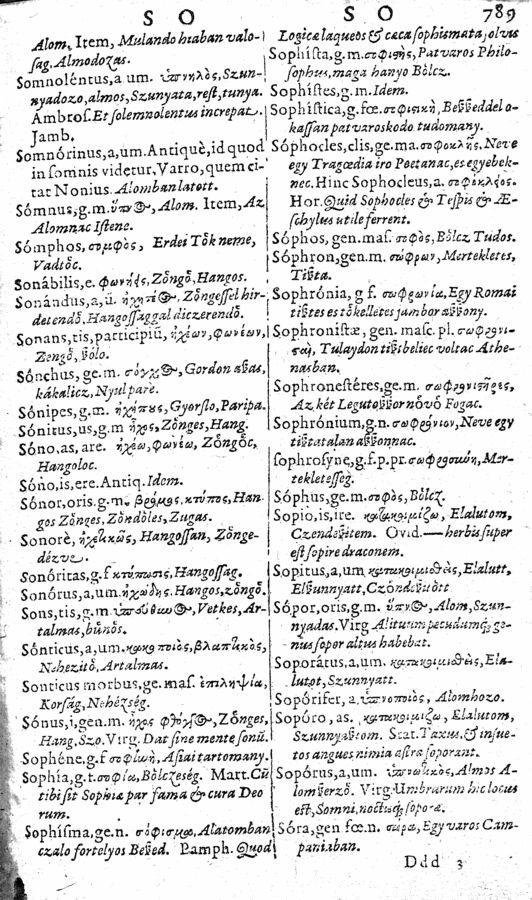 S O
S O
789
Alom, Item, Mulando hiaban valo-
ság. Almodozas.
Somnoléntus, a um. ὑπνηλὸς, Szun-
nyadozo, almos, Szunyata, rest, tunya.
Ambros. Et solemnolentus increpat.
Jamb.
Somnórinus, a, um. Antiquè, id quod
in somnis videtur. Varro, quem ci-
tat Nonius. Alomban latott.
Sómnus, g. m. ὕπνος, Alom. Item, Az
Alomnac Istene.
Sómphos, σομφὸς, Erdei Tök neme,
Vadtöc.
Sonábilis, e. φωνήεις, Zöngö, Hangos.
Sonándus, a, ū. Zöngessel hir-
detendö, Hangossaggal diczerendö.
Sonans, tis, participiū, ἠχέων, φωνέων,
Zengö, ſolo.
Sónchus, ge. m. σόγχος, Gordon aſas,
kákalicz, Nyulpare.
Sónipes, g. m. Gyorslo, Paripa.
Sónitus, us, g. m ἦχος, Zönges, Hang.
Sóno, as, are. ἠχέω, φωνέω, Zöngöc,
Hangoloc.
Sóno, is, ere. Antiq. Idem.
Sónor, oris. g. m. βρόμος, κτύπος, Han
gos Zönges, Zöndöles, Zugas.
Sonorè, Hangossan, Zönge-
dézve.
Sonóritas, g. f κτύπωσις, Hangossag.
Sonórus, a, um. ἠχώδης, Hangos, zöngö.
Sons, tis, g. m. Vetkes, Ar-
talmas, bünös.
Sónticus, a, um. κακοποιὸς, βλαπτικὸς,
Nehezitö, Artalmas.
Sonticus morbus, ge. mas. ἐπιληψία,
Korság, Nehézség.
Sónus, i, gen. m. ἦχος φθόγγος, Zönges,
Hang, Szo. Virg. Dat sine mente sonū.
Sophéne, g. f σοφίωη, Asiai tartomany.
Sophía, g. t. σοφία, Bölczeség. Mart. Cū
tibi sit Sophia par fama & cura Deo
rum.
Sophísma, ge. n. σόφισμα, Alatomban
czalo fortelyos Beſed. Pamph. Quod
Logicæ laqueos & cæca sophismata solvis
Sophísta, g. m. σοφιστὴς, Patvaros Philo-
sophus, maga hanyo Bölcz.
Sophístes, g. m. Idem.
Sophística, g. fœ. σοφιστικὴ, Beſſeddel o-
kassan patvaroskodo tudomany.
Sóphocles, clis, ge. ma. σοφοκλῆς. Neve
egy Tragœdia iro Poetanac, es egyebek-
nec. Hinc Sophocleus, a. σοφόκλειος.
Hor. Quid Sophocles & Tespis & Æ-
schylus utile ferrent.
Sóphos, gen. mas. σοφὸς, Bölcz Tudos.
Sóphron, gen. m. σώφρων, Mertekletes,
Tiſta.
Sophrónia, g f. σωφρωνία, Egy Romai
tiſtes es tökelletes jambor aſſony.
Sophronistæ, gen. masc. pl. σωφρονι-
σταὶ, Tulaydon tiſtbeliec voltac Athe-
nasban.
Sophronestéres, ge. m. σωφρονιστῆρες,
Az két Legutoſſor növö Fogac.
Sophrónium, g. n. σωφρόνιον, Neve egy
tiſtatalan aſſonnac.
sophrosyne, g. f. p. pr. σωφροσύνη, Mer-
tekletesseg.
Sóphus, ge. m. σοφὸς, Bölcz.
Sopio, is, ire. κατακοιμίζω, Elalutom,
Czendeſitem. Ovid. — herbis super
est sopire draconem.
Sopitus, a, um κατακοιμισθεὶς, Elalutt,
Elſunnyatt, Czöndeſüött
Sópor, oris, g. m. ὕπνος, Alom, Szun-
nyadas. Virg Alituum pecudumq; ge-
nus sopor altus habebat.
Soporátus, a, um. κατακοιμισθεὶς, Ela-
lutot, Szunnyatt.
Sopórifer, a. ὑπνοποιὸς, Alomhozo.
Sopóro, as. κατακοιμίζω, Elalutom,
Szunnyaſtom. Stat. Taxus, & insue-
tos angues nimia astra soporant.
Sopórus, a, um. ὑπνωτικὸς, Almos A-
lomſerzö. Virg Umbrarum hic locus
est, Somni, noctisq; soporæ.
Sóra, gen fœ. n. σώρα, Egy varos Cam-
paniaban.
Ddd 3